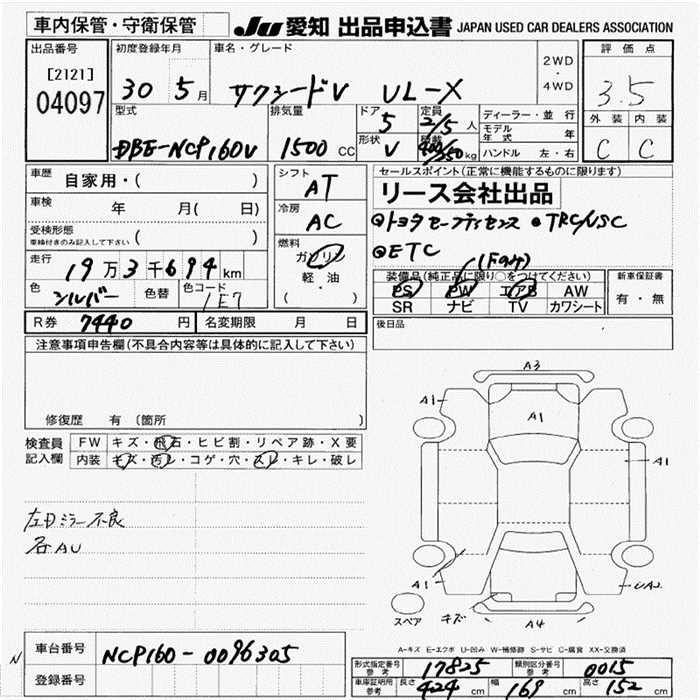 車内保管・守衛保管
JU 愛知 出品申込書 JAPAN USED CAR DEALERS ASSOCIATION
出品番号
[2121]
04097
初度登録年月
30 5月
車名・グレード
サクシードV UL-X
2WD
・
4WD
評価点
3.5
外装 内装
C C
型式
DBE-NCP160V
排気量
1500 CC
ドア
5
形状
V
定員
2/5 人
積載
400/250 kg
ディーラー・並行
モデル年式 年
ハンドル 左・右
車歴 自家用・( )
車検 年 月( 日)
受検形態
車検付きのみ記入して下さい ( )
走行 19万3千694km
色 シルバー 色替 色コード 1E7
シフト
AT
冷房
AC
燃料
ガソリン
軽・油
( )
セールスポイント(正常に機能するものに限ります)
リース会社出品
●トヨタセーフティセンス ●TRC/VSC
●ETC
(Fのみ)
装備品(純正品に限り○をつけてください)
PS PW エアB AW
SR ナビ TV カワシート
新車保証書
有・無
R券 7440円 名変期限 月 日
後日品
注意事項申告欄(不具合内容等は具体的に記入して下さい)
修復歴 有 (箇所 )
検査員記入欄
FW キズ・飛石・ヒビ割・リペア跡・X要
内装 キズ・汚レ・コゲ・穴・スレ・キレ・破レ
左Dミラー不良
右AU
A3
A1
A1
A1
A1
UA2
キズ
A4
スペア
A-キズ E-エクボ U-凹み W-補修跡 S-サビ C-腐食 XX-交換済
N
車台番号 NCP160-0096305
登録番号
形式指定番号 参考 17825
類別区分番号 参考 0015
車庫証明用 参考 長さ 424cm 幅 169cm 高さ 152cm